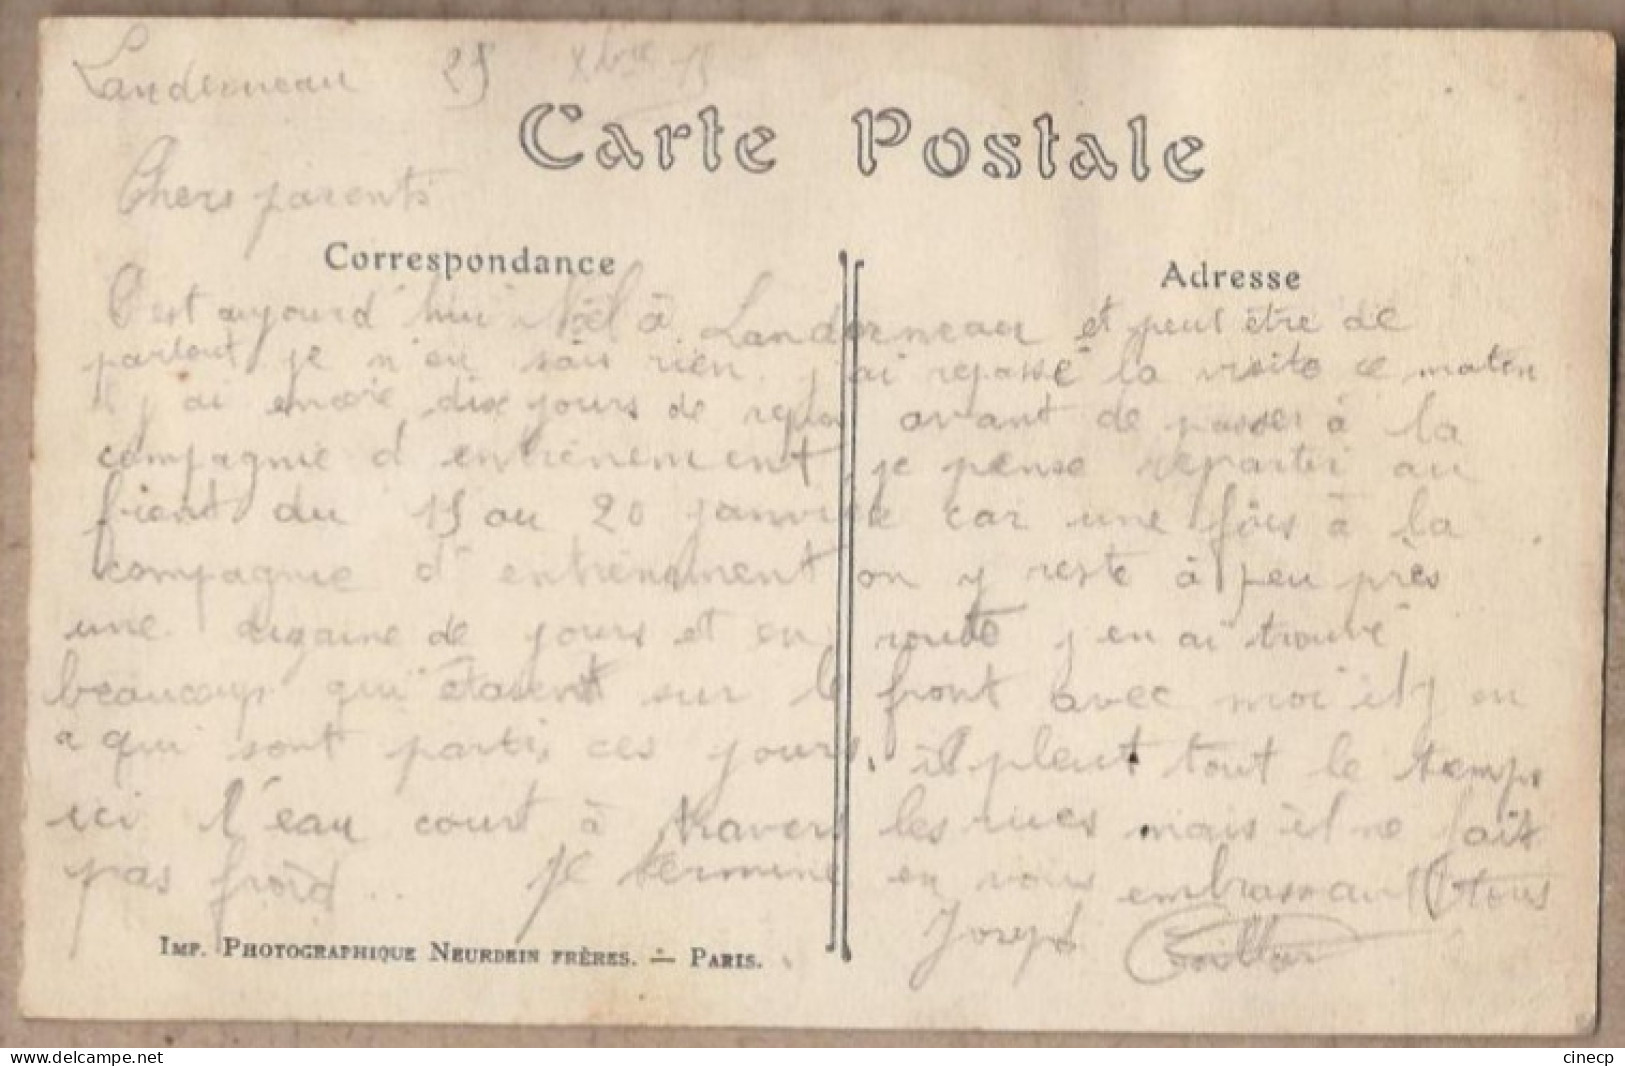 Landerneau 25 Xbre 15
Carte Postale
Chers parents
Correspondance
Adresse
C'est aujourd'hui Noël à Landerneau et peut être de
partout je n'en sais rien. j'ai repassé la visite ce matin
j'ai encore dix jours de repos avant de passer à la
compagnie d'entrênement, je pense repartir au
front du 15 au 20 janvier car une fois à la
compagnie d'entrênement on y reste à peu près
une dizaine de jours et en route j'en ai trouvé
beaucoup qui étaient sur le front avec moi il y en
a qui sont partis ces jours. il pleut tout le temps
ici l'eau court à travers les rues mais il ne fait
pas froid.. Je termine en vous embrassant tous
Joseph
IMP. PHOTOGRAPHIQUE NEURDEIN FRÈRES. — PARIS.
www.delcampe.net
cinecp